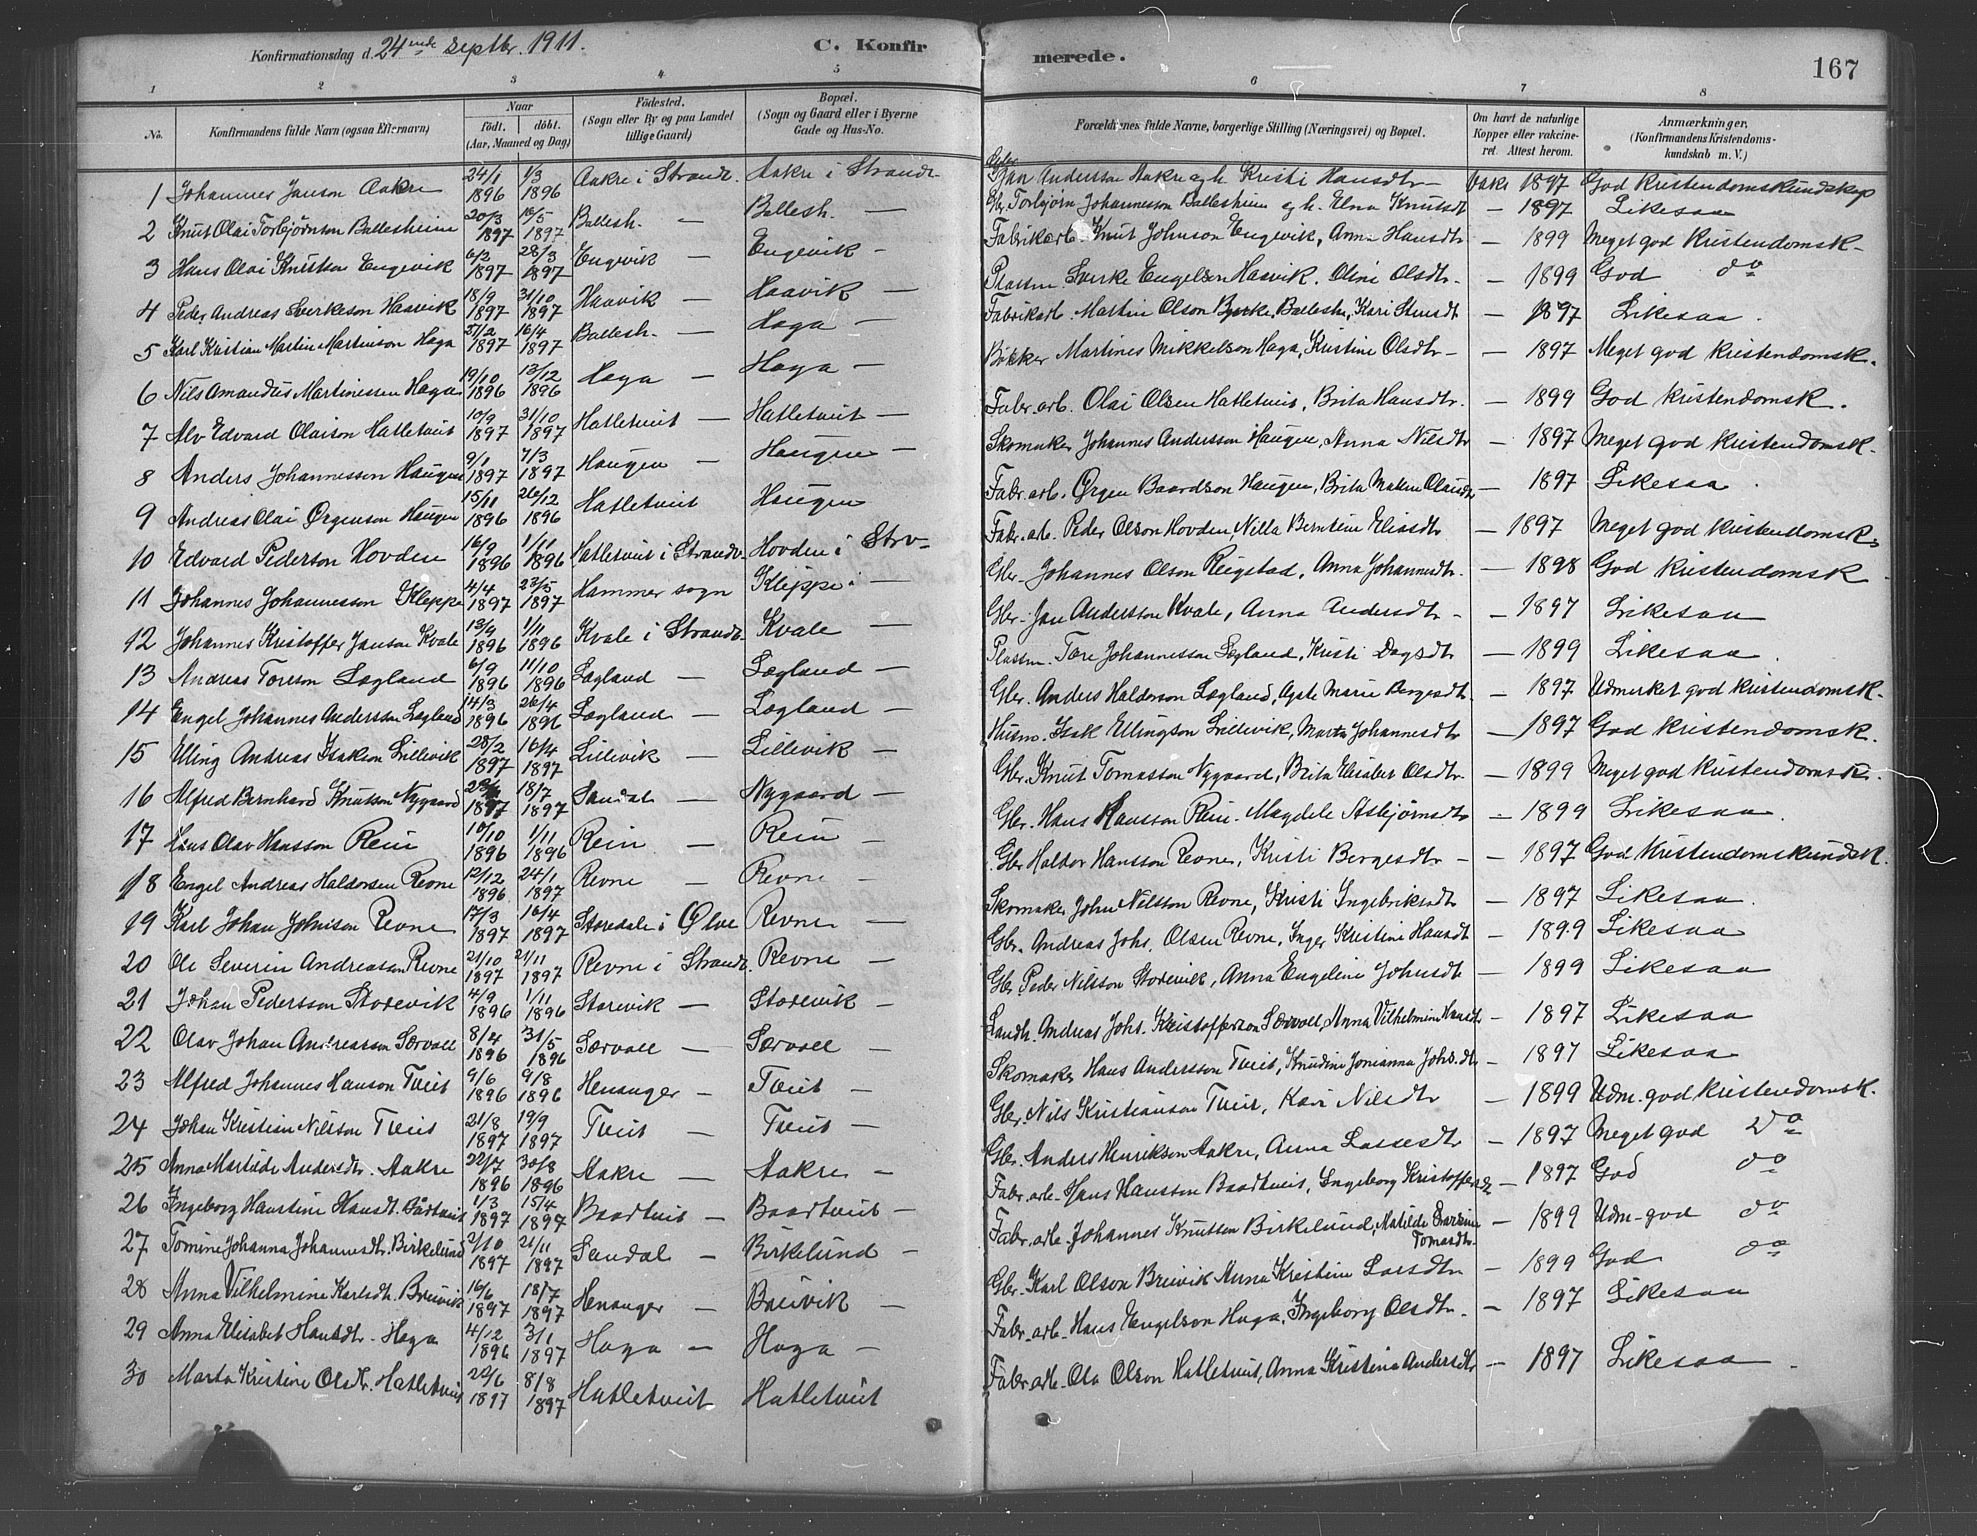 Konfirmationsdag d. 24ende Septbr. 1911.
C. Konfirmerede.
167
1 2 3 4 5 6 7 8
No. | Konfirmandens fulde Navn (ogsaa Efternavn) | Naar født. døbt. (Aar, Maaned og Dag) | Fødested. (Sogn eller By og paa Landet tillige Gaard) | Bopæl. (Sogn og Gaard eller i Byerne Gade og Hus-No. | Forældrenes fulde Navne, borgerlige Stilling (Næringsvei) og Bopæl. | Om havt de naturlige Kopper eller vakcineret. Attest herom. | Anmærkninger, (Konfirmandens Kristendomskundskab m. V.)
1 Johannes Janson Aakre 24/1 1896 1/3 1896 Aakre i Strandv. Aakre i Strandv. Jan Anderssen Aakre og h. Kristi Hansdtr - Vaks 1897 God Kristendomskundskap
2 Knut Olai Torbjørnsen Ballesheim 20/3 1897 16/5 1897 Ballesh. — Ballesh. — Gbr. Torbjørn Johannessen Ballesheim og h. Elna Knutsdt — 1897 Likesaa
3 Hans Olai Knutsen Engevik 6/2 1897 28/3 1897 Engevik — Engevik — Fabrikarb. Knut Johnson Engevik, Anna Hansdtr — 1899 Meget god Kristendomsk.
4 Peder Andreas Sverkeson Haavik 18/9 1897 31/10 1897 Haavik — Haavik — Plassm. Sverke Engelsen Haavik. Oline Olsdtr — 1899 God do
5 Karl Kristian Martin Martinson Haga 27/2 1897 16/4 1897 Ballesh. — Haga — Fabrikarb. Martin Olson Byrke, Ballesh., Kari — 1897 Likesaa.
6 Nils Amandus Martinessen Haga 19/10 1896 13/12 1896 Haga — Haga — Bøkker Martines Mikkelson Haga, Kristine Olsdtr — 1897 Meget god Kristendomsk.
7 Alv Edvard Olaison Hatletveit 10/9 1897 31/10 1897 Hatletveit — Hatletveit — Fabr. arb. Olai Olsen Hatletveit, Brita Hansdtr. — 1899 God Kristendomsk.
8 Anders Johannesson Haugen 9/1 1897 7/3 1897 Haugen — Haugen — Skomaker Johannes Andersson Haugen, Anna Nilsdtr — 1897 Meget god Kristendomsk.
9 Andreas Olai Ørgenson Haugen 15/11 1896 26/12 1896 Hatletveit Haugen Fabr. arb. Ørgen Baardson Haugen, Brita Malene Olausdtr — 1897 Likesaa
10 Edvard Pederson Hovden 16/9 1896 1/11 1896 Hatletveit i Strandv. Hovden i Strv. Fabr. arb. Peder Olson Hovden, Nilla Berntine Eliasdtr — 1897 Meget god Kristendomsk.
11 Johannes Johannesson Kleppe 4/4 1897 23/5 1897 Hammer sogn Kleppe i — Gbr. Johannes Olson Reigstad, Anna Johannesdtr. — 1898 God Kristendomsk
12 Johannes Kristoffer Janson Kvale 13/9 1896 1/11 1896 Kvale i Strandv. Kvale — Gbr. Jan Andersson Kvale, Anna Andersdtr — 1897 Likesaa
13 Andreas Toreson Lægland 6/9 1896 11/10 1896 Lægland — Lægland — Plassm. Tore Johannesson Lægland, Kristi Dagsdtr — 1899 Likesaa.
14 Engel Johannes Andersson Lægland 14/3 1896 26/4 1896 Lægland — Lægland — Gbr. Anders Halderson Lægland, Agte Marie Bergesdtr. — 1897 Udmerket god Kristendomsk.
15 Elling Andreas Isakson Lillevik 28/2 1897 16/4 1897 Lillevik — Lillevik — Husm. Isak Ellingson Lillevik, Marta Johannesdtr — 1897 God Kristendomsk.
16 Alfred Bernhard Knutson Nygaard 1897 18/7 1897 Sandal — Nygaard — Gbr. Knut Tomasson Nygaard, Brita Elisabet Olsdtr. — 1899 Meget god Kristendomsk.
17 Hans Olav Hansson Rein 10/10 1896 1/11 1896 Rein — Rein — Gbr. Hans Hansson Rein. Magdele Asbjørnsdtr — 1899 Likesaa.
18 Engel Andreas Haldorsen Revne 12/12 1896 24/1 1897 Revne — Revne — Gbr Haldor Hansson Revne, Kristi Bergesdtr — 1897 God Kristendomskundsk.
19 Karl Johan Johnson Revne 17/3 1897 16/4 1897 Storedale i Ølve Revne — Skomaker John Nilsson Revne, Kristi Ingebriksdtr — 1897 Likesaa.
20 Ole Severin Andreassen Revne 21/10 1897 21/11 1897 Revne i Strandv. Revne — Gbr. Andreas Johs. Olsen Revne, Inger Kristine Hansdt — 1899 Likesaa
21 Johan Pedersson Storevik 4/9 1896 1/11 1896 Storevik — Storevik — Gbr. Peder Nilsson Storevik, Anna Engeline Johnsdtr — 1899 Likesaa
22 Olav Johan Andreasson Særvoll 8/4 1896 31/5 1896 Særvoll — Særvoll — Landh. Andreas Johs. Kristofferson Særvoll, Anna Vilhelmine Hansdtr — 1897 Likesaa
23 Alfred Johannes Hanson Tveit 9/6 1896 9/8 1896 Henanger — Tveit — Skomaker Hans Anderssen Tveit, Knudine Jonianna Johs.dtr — 1897 Likesaa
24 Johan Kristian Nilsson Tveit 21/8 1897 19/9 1897 Tveit — Tveit — Gbr. Nils Kristianson Tveit, Kari Nilsdtr — 1899 Udm. god Kristendomsk.
25 Anna Martilde Andersdtr. Aakre 22/7 1896 30/8 1896 Aakre — Aakre — Gbr. Anders Henrikson Aakre, Anna Lassesdtr — 1897 Meget god Do
26 Ingeborg Hanstine Hansdt. Bådtveit 1/3 1897 15/4 1897 Baadtveit — Baadtveit — Fabr. arb. Hans Hansson Baadtveit, Ingeborg Kristoffersdtr — 1897 God do
27 Tomine Johanna Johannesdtr. Birkelund 2/10 1897 21/11 1897 Sandal — Birkelund — Fabr. arb. Johannes Knutson Birkelund, Matilde Tomasdtr. — 1899 Udm. god do
28 Anna Vilhelmine Karlsdtr. Breivik 16/6 1897 18/7 1897 Henanger — Breivik — Gbr. Karl Olson Breivik Anna Kristine Larsdtr — 1899 God do
29 Anna Elisabet Hansdtr. Haga 4/12 1896 3/1 1897 Haga — Haga — Fabr. arb. Hans Engelson Haga, Ingeborg Olsdtr. — 1897 Likesaa
30 Marta Kristine Olsdtr. Hatletveit 22/6 1897 8/8 1897 Hatletveit Hatletveit Fabr. arb. Ola Olson Hatletveit, Anna Kristina Andersdtr — 1897 Likesaa